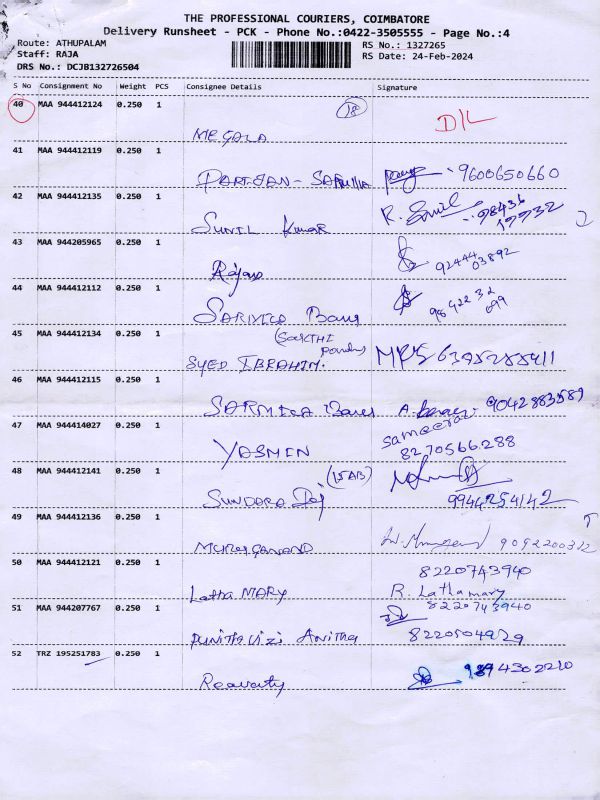 THE PROFESSIONAL COURIERS, COIMBATORE
Delivery Runsheet - PCK - Phone No.:0422-3505555 - Page No.:4
Route: ATHUPALAM
Staff: RAJA
DRS No.: DCJB132726504
RS No.: 1327265
RS Date: 24-Feb-2024
S No Consignment No Weight PCS Consignee Details Signature
40 MAA 944412124 0.250 1 18
MEGALA D/L
41 MAA 944412119 0.250 1
9600650660
42 MAA 944412135 0.250 1
SUNIL Kumar R. Sunil 98436
17732
2
43 MAA 944205965 0.250 1
92444
03892
44 MAA 944412112 0.250 1
98422 32
099
45 MAA 944412134 0.250 1 (SAKTHI
SYED IBRAHIM.
46 MAA 944412115 0.250 1
SARMILA Banu 9042883589
47 MAA 944414027 0.250 1
YASMIN sameera
8270566288
48 MAA 944412141 0.250 1 (15AB)
SUNDARA Raj 9944254142
49 MAA 944412136 0.250 1
9092200312
50 MAA 944412121 0.250 1 8220743940
Latha MARY R. Lathamary
51 MAA 944207767 0.250 1 8220743940
Anitha 8220504929
52 TRZ 195251783 0.250 1
4302210